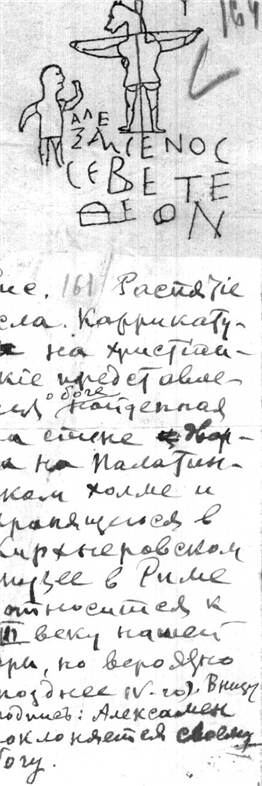 164
ΑΛΕ
ΞΑΜΕΝΟC
CΕΒΕΤΕ
ΘΕΟΝ
ис. 161 Распятіе
сла. Каррикату-
на христіан-
кіе представле-
о боге
найденная
а стене двор-
а на Палатин-
ском холме и
хранящегося в
Кирхнеровском
музее в Риме
относится к
III веку нашей
эры, но вероятно
позднее IV-го). Внизу
подпись: Алексамен
поклоняется своему
богу.